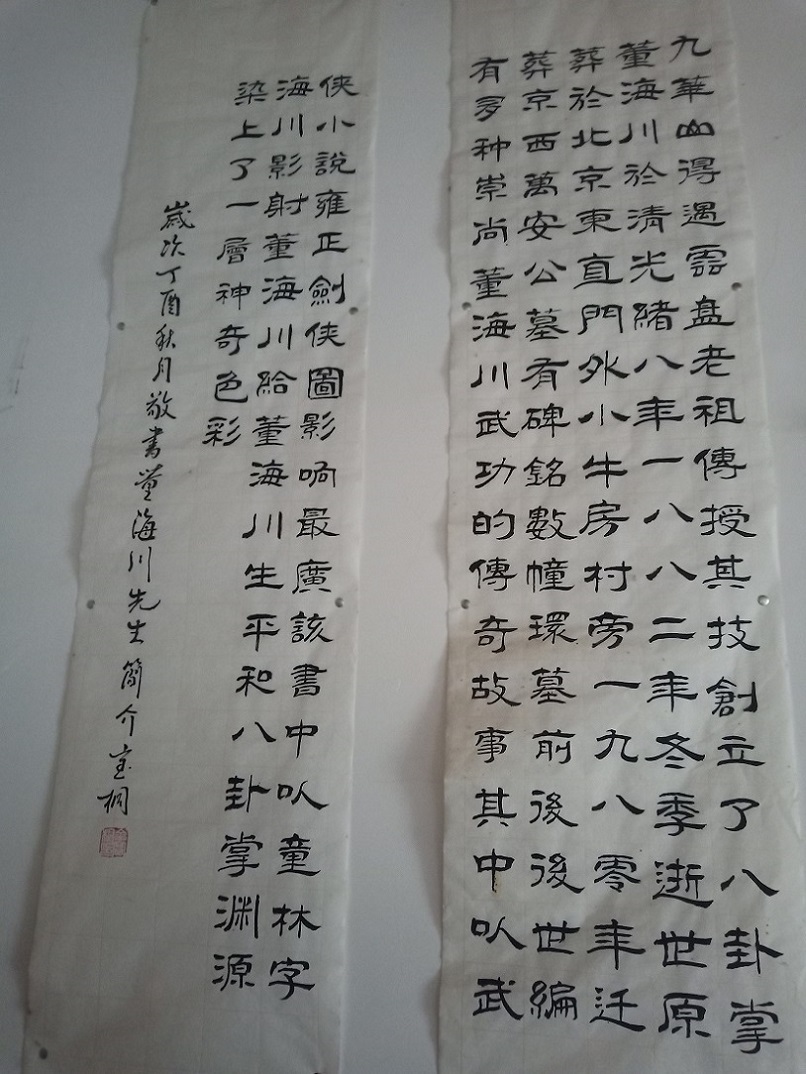 九華山得遇雲盘老祖傳授其技創立了八卦掌
董海川於清光緒八年一八八二年冬季逝世原
葬於北京東直門外小牛房村旁一九八零年迁
葬京西萬安公墓有碑銘數幢環墓前後後世編
有多种崇尚董海川武功的傳奇故事其中以武
侠小說雍正劍侠圖影响最廣該書中以童林字
海川影射董海川給董海川生平和八卦掌淵源
染上了一層神奇色彩
歲次丁酉秋月敬書董海川先生簡介宝桐